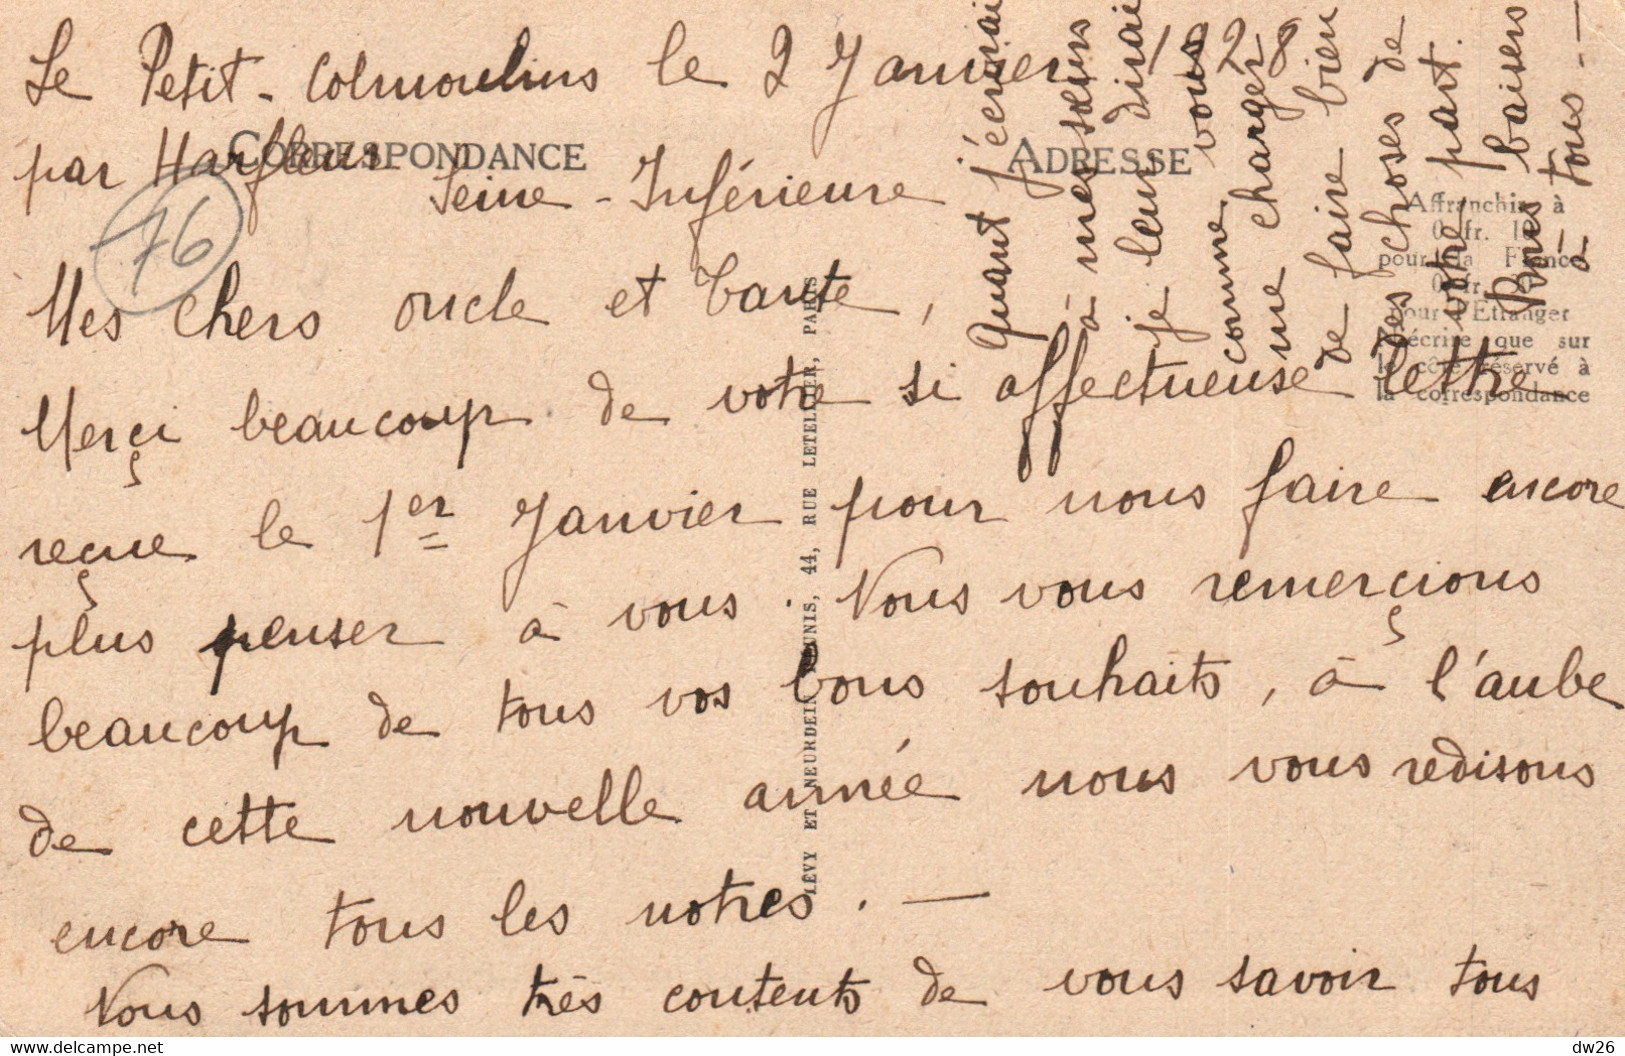 Le Petit-Colmoulins le 2 Janvier 1928
par Harfleur
Seine-Inférieure
CORRESPONDANCE
ADRESSE
76
Mes chers oncle et tante,
Merçi beaucoup de votre si affectueuse lettre
reçue le 1er Janvier pour nous faire encore
plus penser à vous. Nous vous remerçions
beaucoup de tous vos bons souhaits, à l'aube
de cette nouvelle année nous vous redisons
encore tous les notres. —
Nous sommes très contents de vous savoir tous
Quant j'écrirai
à mes sœurs
je leur dirai
comme vous
me charger
de faire bien
des choses de
votre part.
Bons baisers
à tous. —
Affranchir à
0 fr.
pour la France
0 fr.
pour l'Etranger
N'écrire que sur
le côté réservé à
la correspondance
LÉVY ET NEURDEIN RÉUNIS, 44, RUE LETELLIER, PARIS
delcampe.net
dw26